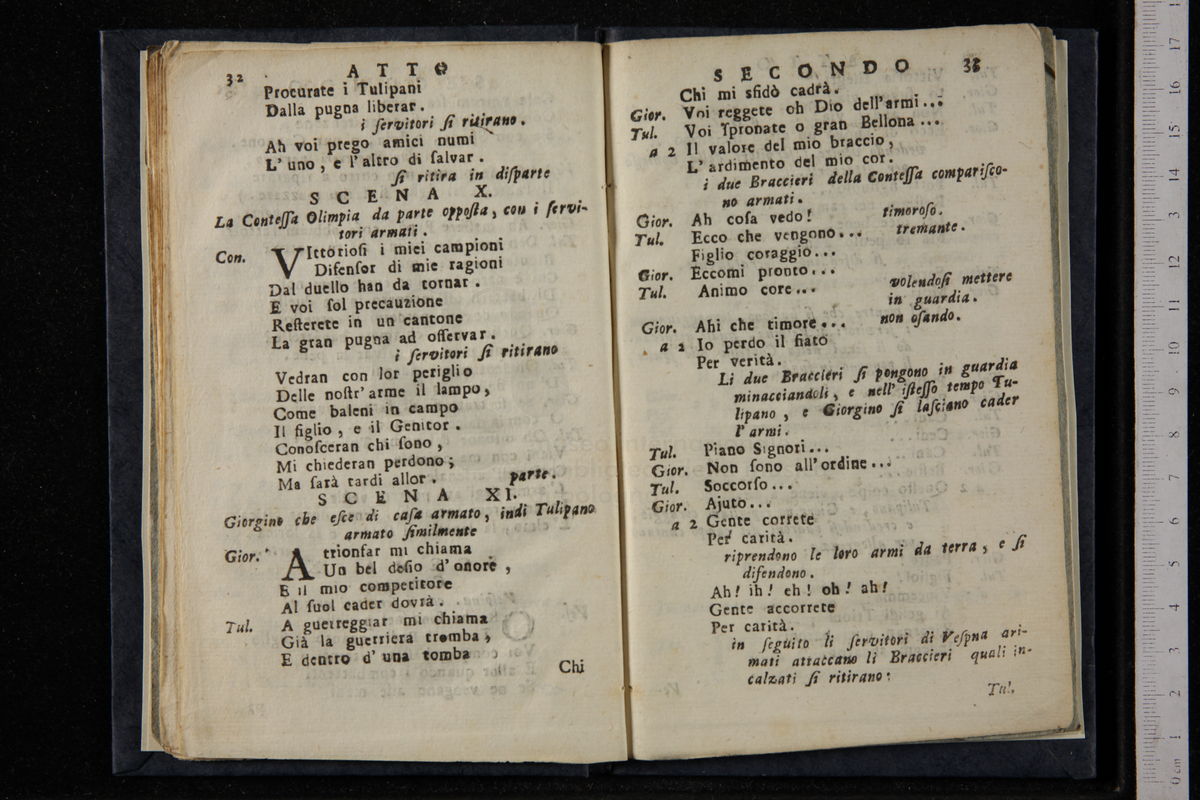 32 ATTO
Procurate i Tulipani
Dalla pugna liberar.
i ſervitori ſi ritirano.
Ah voi prego amici numi
L' uno, e l'altro di ſalvar.
ſi ritira in diſparte
SCENA X.
La Conteſſa Olimpia da parte oppoſta, con i ſervi-
tori armati.
Con. VIttorioſi i miei campioni
Difenſor di mie ragioni
Dal duello han da tornar.
E voi ſol precauzione
Reſterete in un cantone
La gran pugna ad oſſervar.
i ſervitori ſi ritirano
Vedran con lor periglio
Delle noſtr' arme il lampo,
Come baleni in campo
Il figlio, e il Genitor.
Conoſceran chi ſono,
Mi chiederan perdono;
Ma ſarà tardi allor. parte.
SCENA XI.
Giorgino che eſce di caſa armato, indi Tulipano
armato ſimilmente
Gior. A trionfar mi chiama
Un bel deſio d'onore,
E il mio competitore
Al ſuol cader dovrà.
Tul. A guerreggiar mi chiama
Già la guerriera tromba,
E dentro d'una tomba
Chi
SECONDO 33
Chi mi sfidò cadrà.
Gior. Voi reggete oh Dio dell'armi...
Tul. Voi ſpronate o gran Bellona...
a 2 Il valore del mio braccio,
L' ardimento del mio cor.
i due Braccieri della Conteſſa compariſco-
no armati.
Gior. Ah coſa vedo! timoroſo.
Tul. Ecco che vengono... tremante.
Figlio coraggio...
Gior. Eccomi pronto...
Tul. Animo core... volendoſi mettere
in guardia.
Gior. Ahi che timore... non oſando.
a 2 Io perdo il fiato
Per verità.
Li due Braccieri ſi pongono in guardia
minacciandoli, e nell' iſteſſo tempo Tu-
lipano, e Giorgino ſi laſciano cader
l'armi.
Tul. Piano Signori...
Gior. Non ſono all'ordine...
Tul. Soccorſo...
Gior. Ajuto...
a 2 Gente correte
Per carità.
riprendono le loro armi da terra, e ſi
difendono.
Ah! ih! eh! oh! ah!
Gente accorrete
Per carità.
in ſeguito li ſervitori di Veſpina ar-
mati attaccano li Braccieri quali in-
calzati ſi ritirano.
Tul.